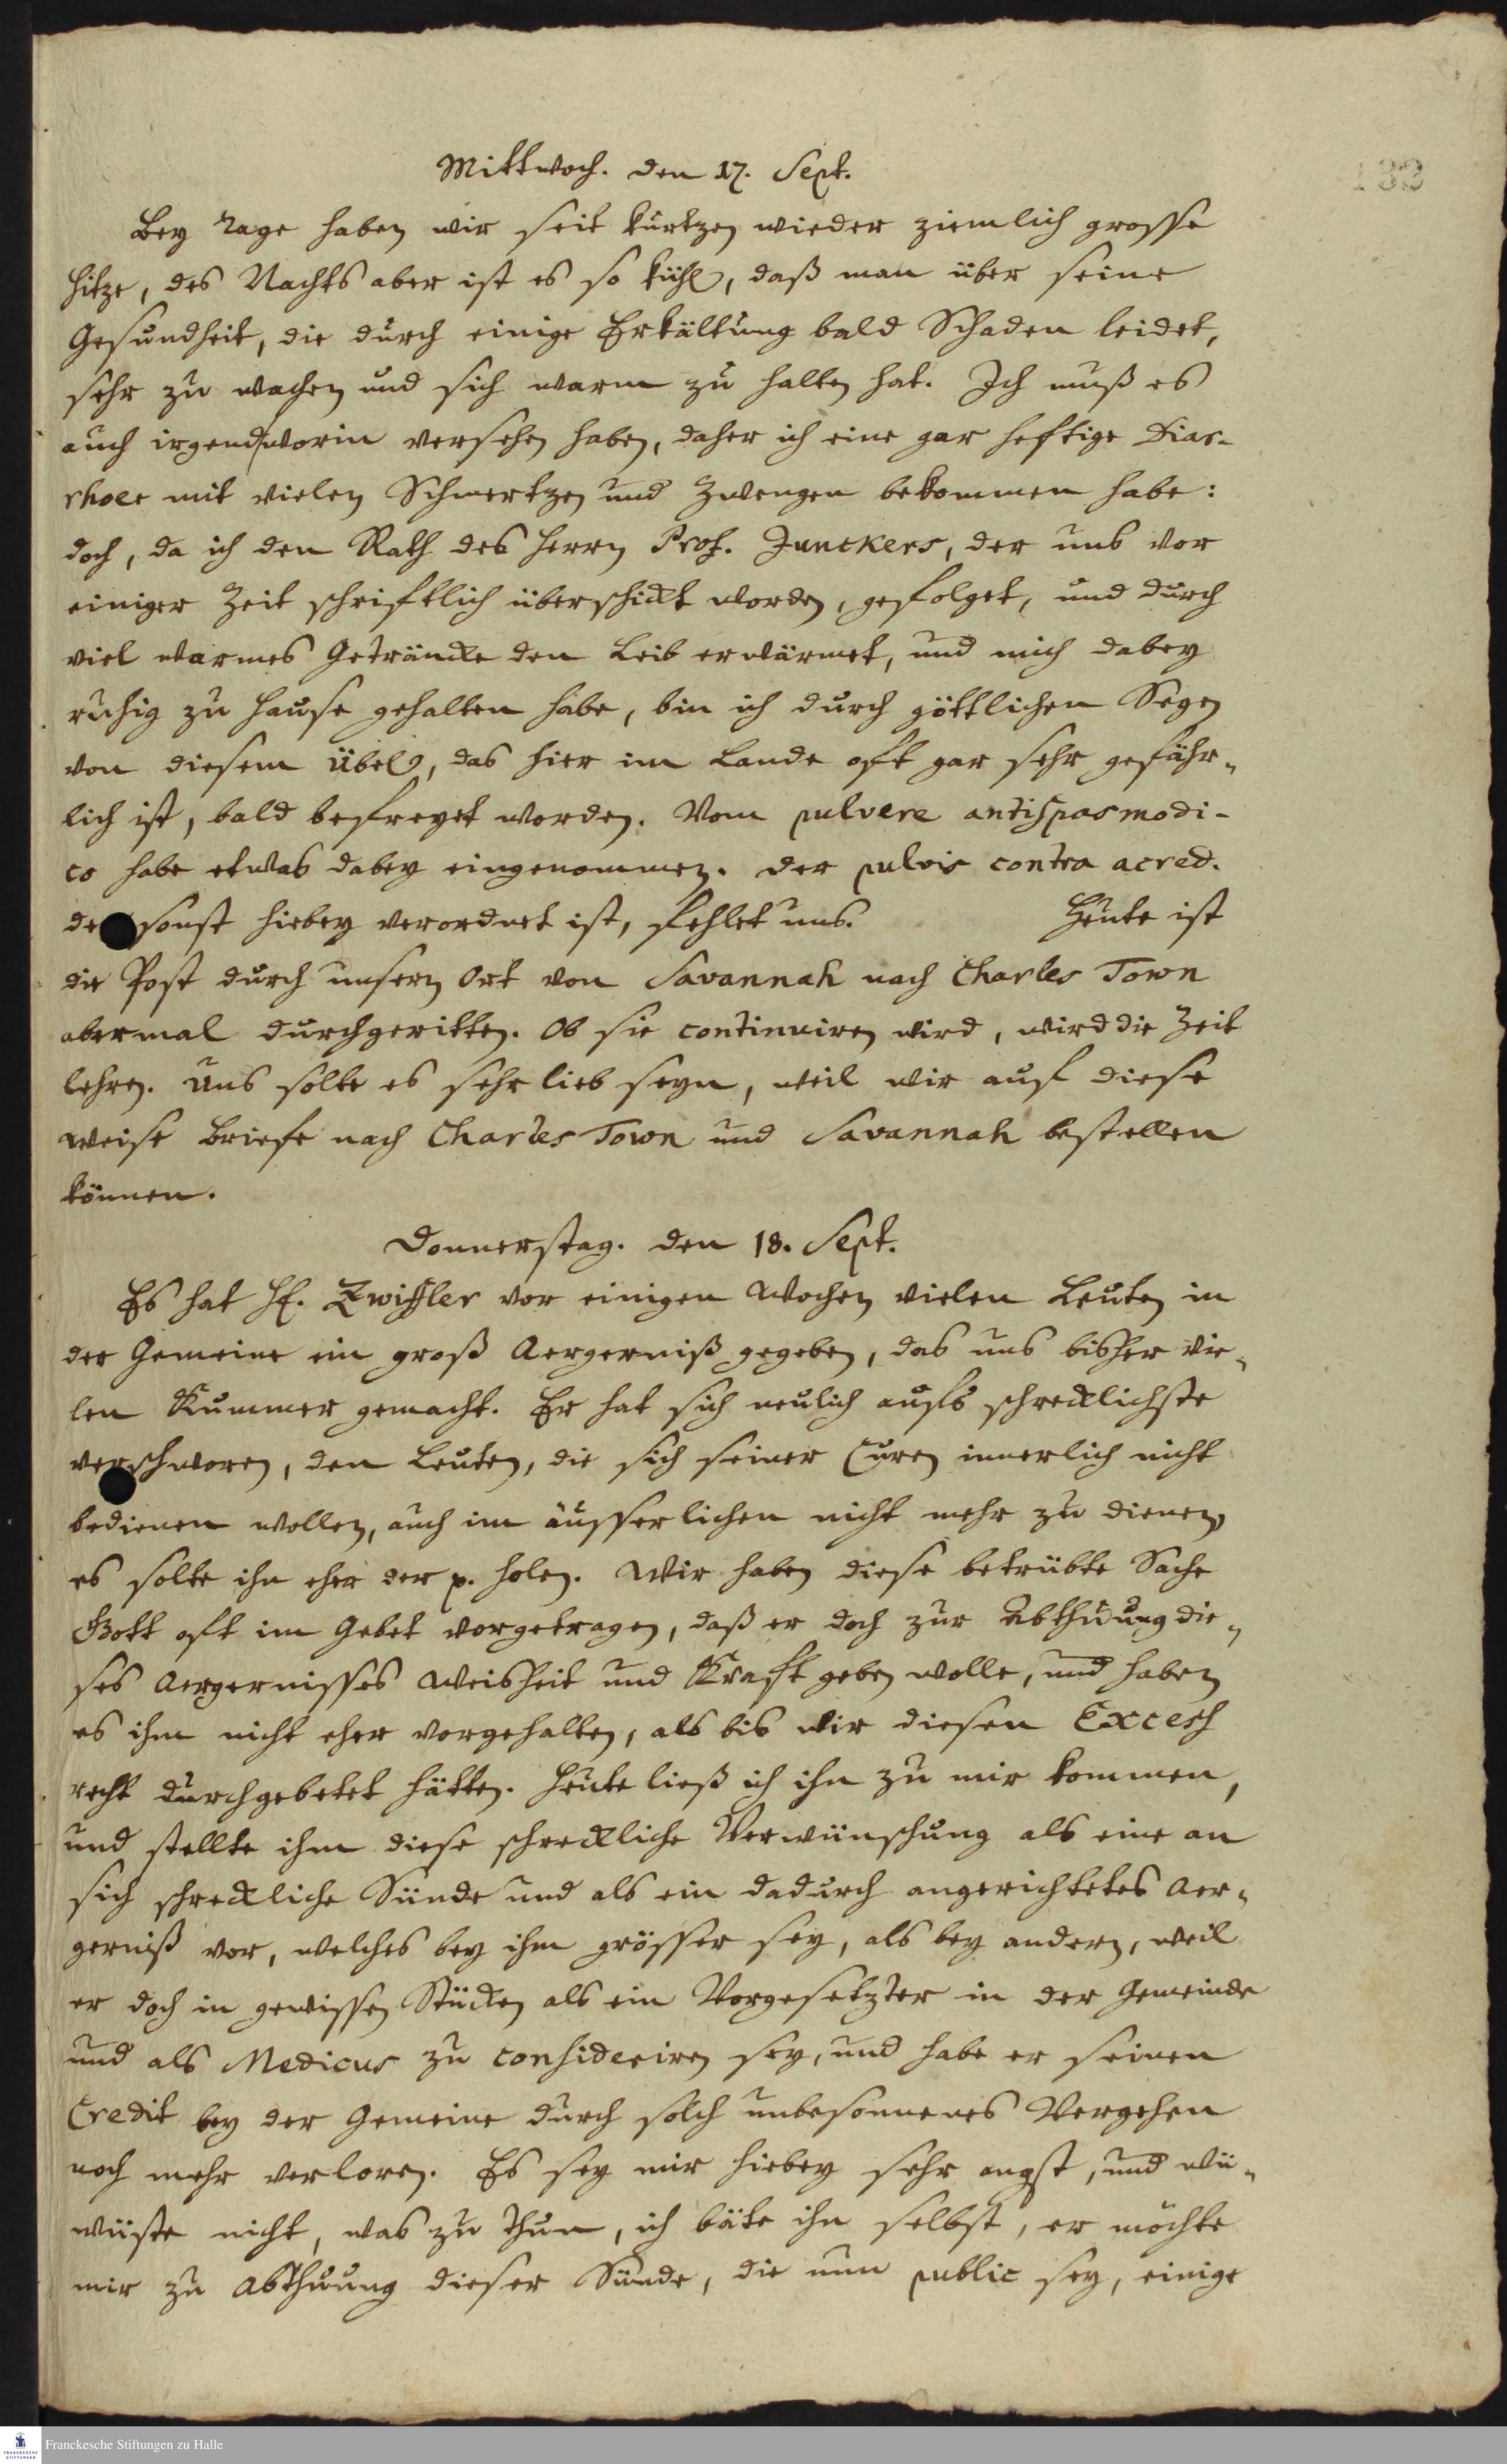 Mittwoch. den 17. Sept.
Bey Tage haben wir seit kurtzen wieder ziemlich grosse
Hitze, des Nachts aber ist es so kühl, daß man über seine
Gesundheit, die durch einige Erkältung bald Schaden leidet,
sehr zu wachen und sich warm zu halten hat. Ich muß es
auch irgend worin versehen haben, daher ich eine gar heftige Diar-
rhoee mit vielen Schmertzen und Zwengen bekommen habe:
doch, da ich den Rath des Herrn Prof. Junckers, der uns vor
einiger Zeit schriftlich überschickt worden, gefolget, und durch
viel warmes Geträncke den Leib erwärmet, und mich dabey
ruhig zu Hause gehalten habe, bin ich durch göttlichen Segen
von diesem Übel, das hier im Lande oft gar sehr gefähr-
lich ist, bald befreyet worden. Vom pulvere antispasmodi-
co habe etwas dabey eingenommen. der pulvis contra acred.
de sonst hiebey verordnet ist, fehlet uns. Heute ist
die Post durch unsern Ort von Savannah nach Charles Town
abermal durchgeritten. Ob sie continuiren wird, wird die Zeit
lehren. Uns solte es sehr lieb seyn, weil wir auf diese
Weise Briefe nach Charles Town und Savannah bestellen
können.
Donnerstag. den 18. Sept.
Es hat H. Zwiffler vor einigen Wochen vielen Leuten in
der Gemeine ein groß Aergerniß gegeben, das uns bisher vie-
len Kummer gemacht. Er hat sich neulich aufs schrecklichste
verschworen, den Leuten, die sich seiner Curen innerlich nicht
bedienen wollen, auch im äusserlichen nicht mehr zu dienen,
es solte ihn eher der p. holen. Wir haben diese betrübte Sache
Gott oft im Gebet vorgetragen, daß er doch zur Abthuung die-
ses Aergernisses Weisheit und Kraft geben wolle, und haben
es ihm nicht eher vorgehalten, als bis wir diesen Excess
recht durchgebetet hätten. Heute ließ ich ihn zu mir kommen,
und stellte ihm diese schreckliche Verwünschung als eine an
sich schreckliche Sünde und als ein dadurch angerichtetes Aer-
gerniß vor, welches bey ihm grösser sey, als bey andern, weil
er doch in gewissen Stücken als ein Vorgesetzter in der Gemeinde
und als Medicus zu consideriren sey, und habe er seinen
Credit bey der Gemeine durch solch unbesonnenes Vergehen
noch mehr verloren. Es sey mir hiebey sehr angst, und wü-
wüste nicht, was zu thun, ich bäte ihn selbst, er möchte
mir zu Abthuung dieser Sünde, die nun public sey, einige
Franckesche Stiftungen zu Halle